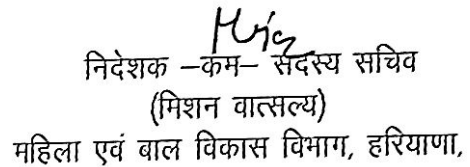 निदेशक –कम– सदस्य सचिव
(मिशन वात्सल्य)
महिला एवं बाल विकास विभाग, हरियाणा,